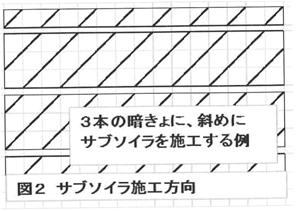 3本の暗きょに、斜めに
サブソイラを施工する例
図2 サブソイラ施工方向